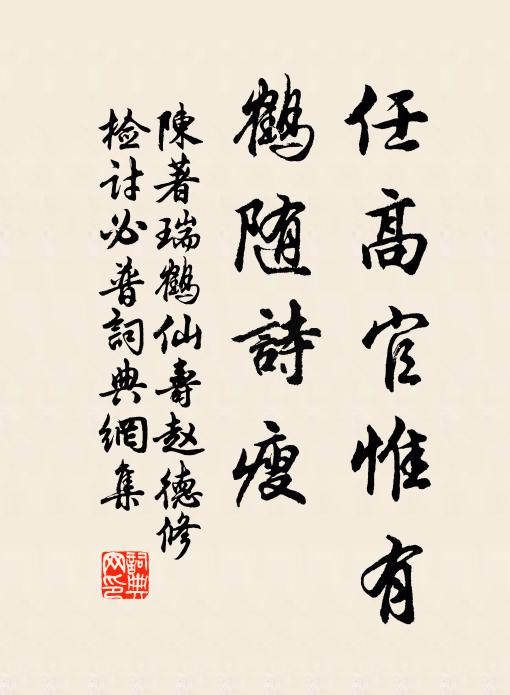 任高官惟有
鹤随詩瘦
陳著瑞鹤仙壽赵德修
检討必普詞典網集
詞典网印